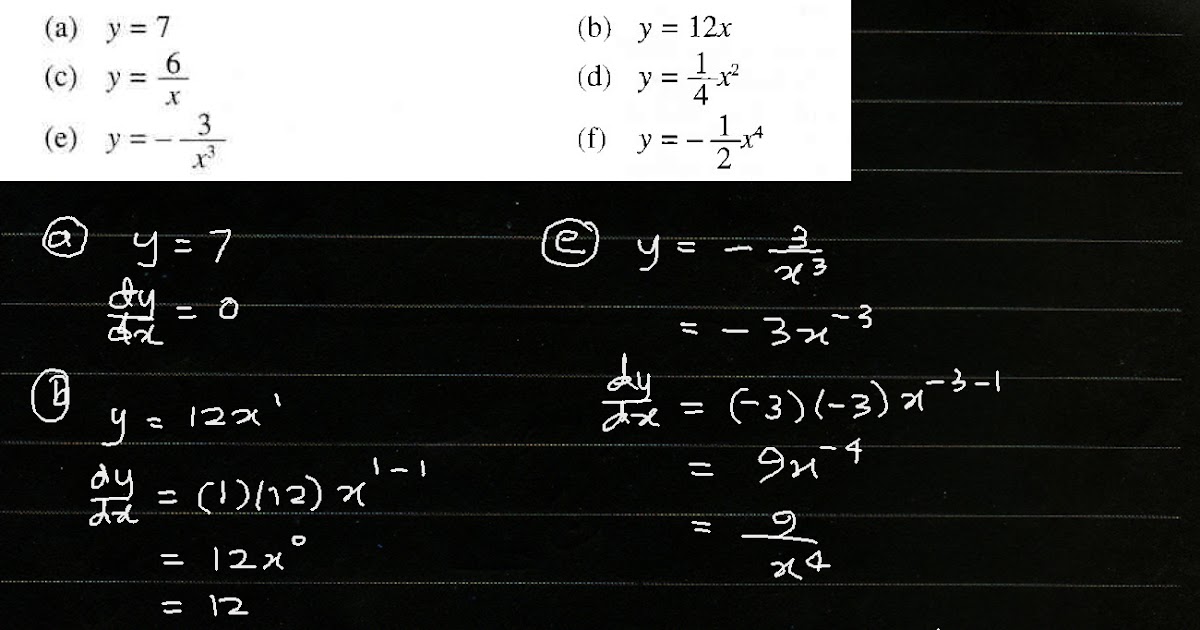 (a) y = 7
(b) y = 12x
(c) y = 6/x
(d) y = 1/4 x²
(e) y = - 3/x³
(f) y = - 1/2 x⁴
ⓐ y = 7
dy/dx = 0
ⓑ y = 12x¹
dy/dx = (1)(12) x¹⁻¹
= 12x⁰
= 12
ⓔ y = - 3/x³
= - 3x⁻³
dy/dx = (-3)(-3) x⁻³⁻¹
= 9x⁻⁴
= 9/x⁴